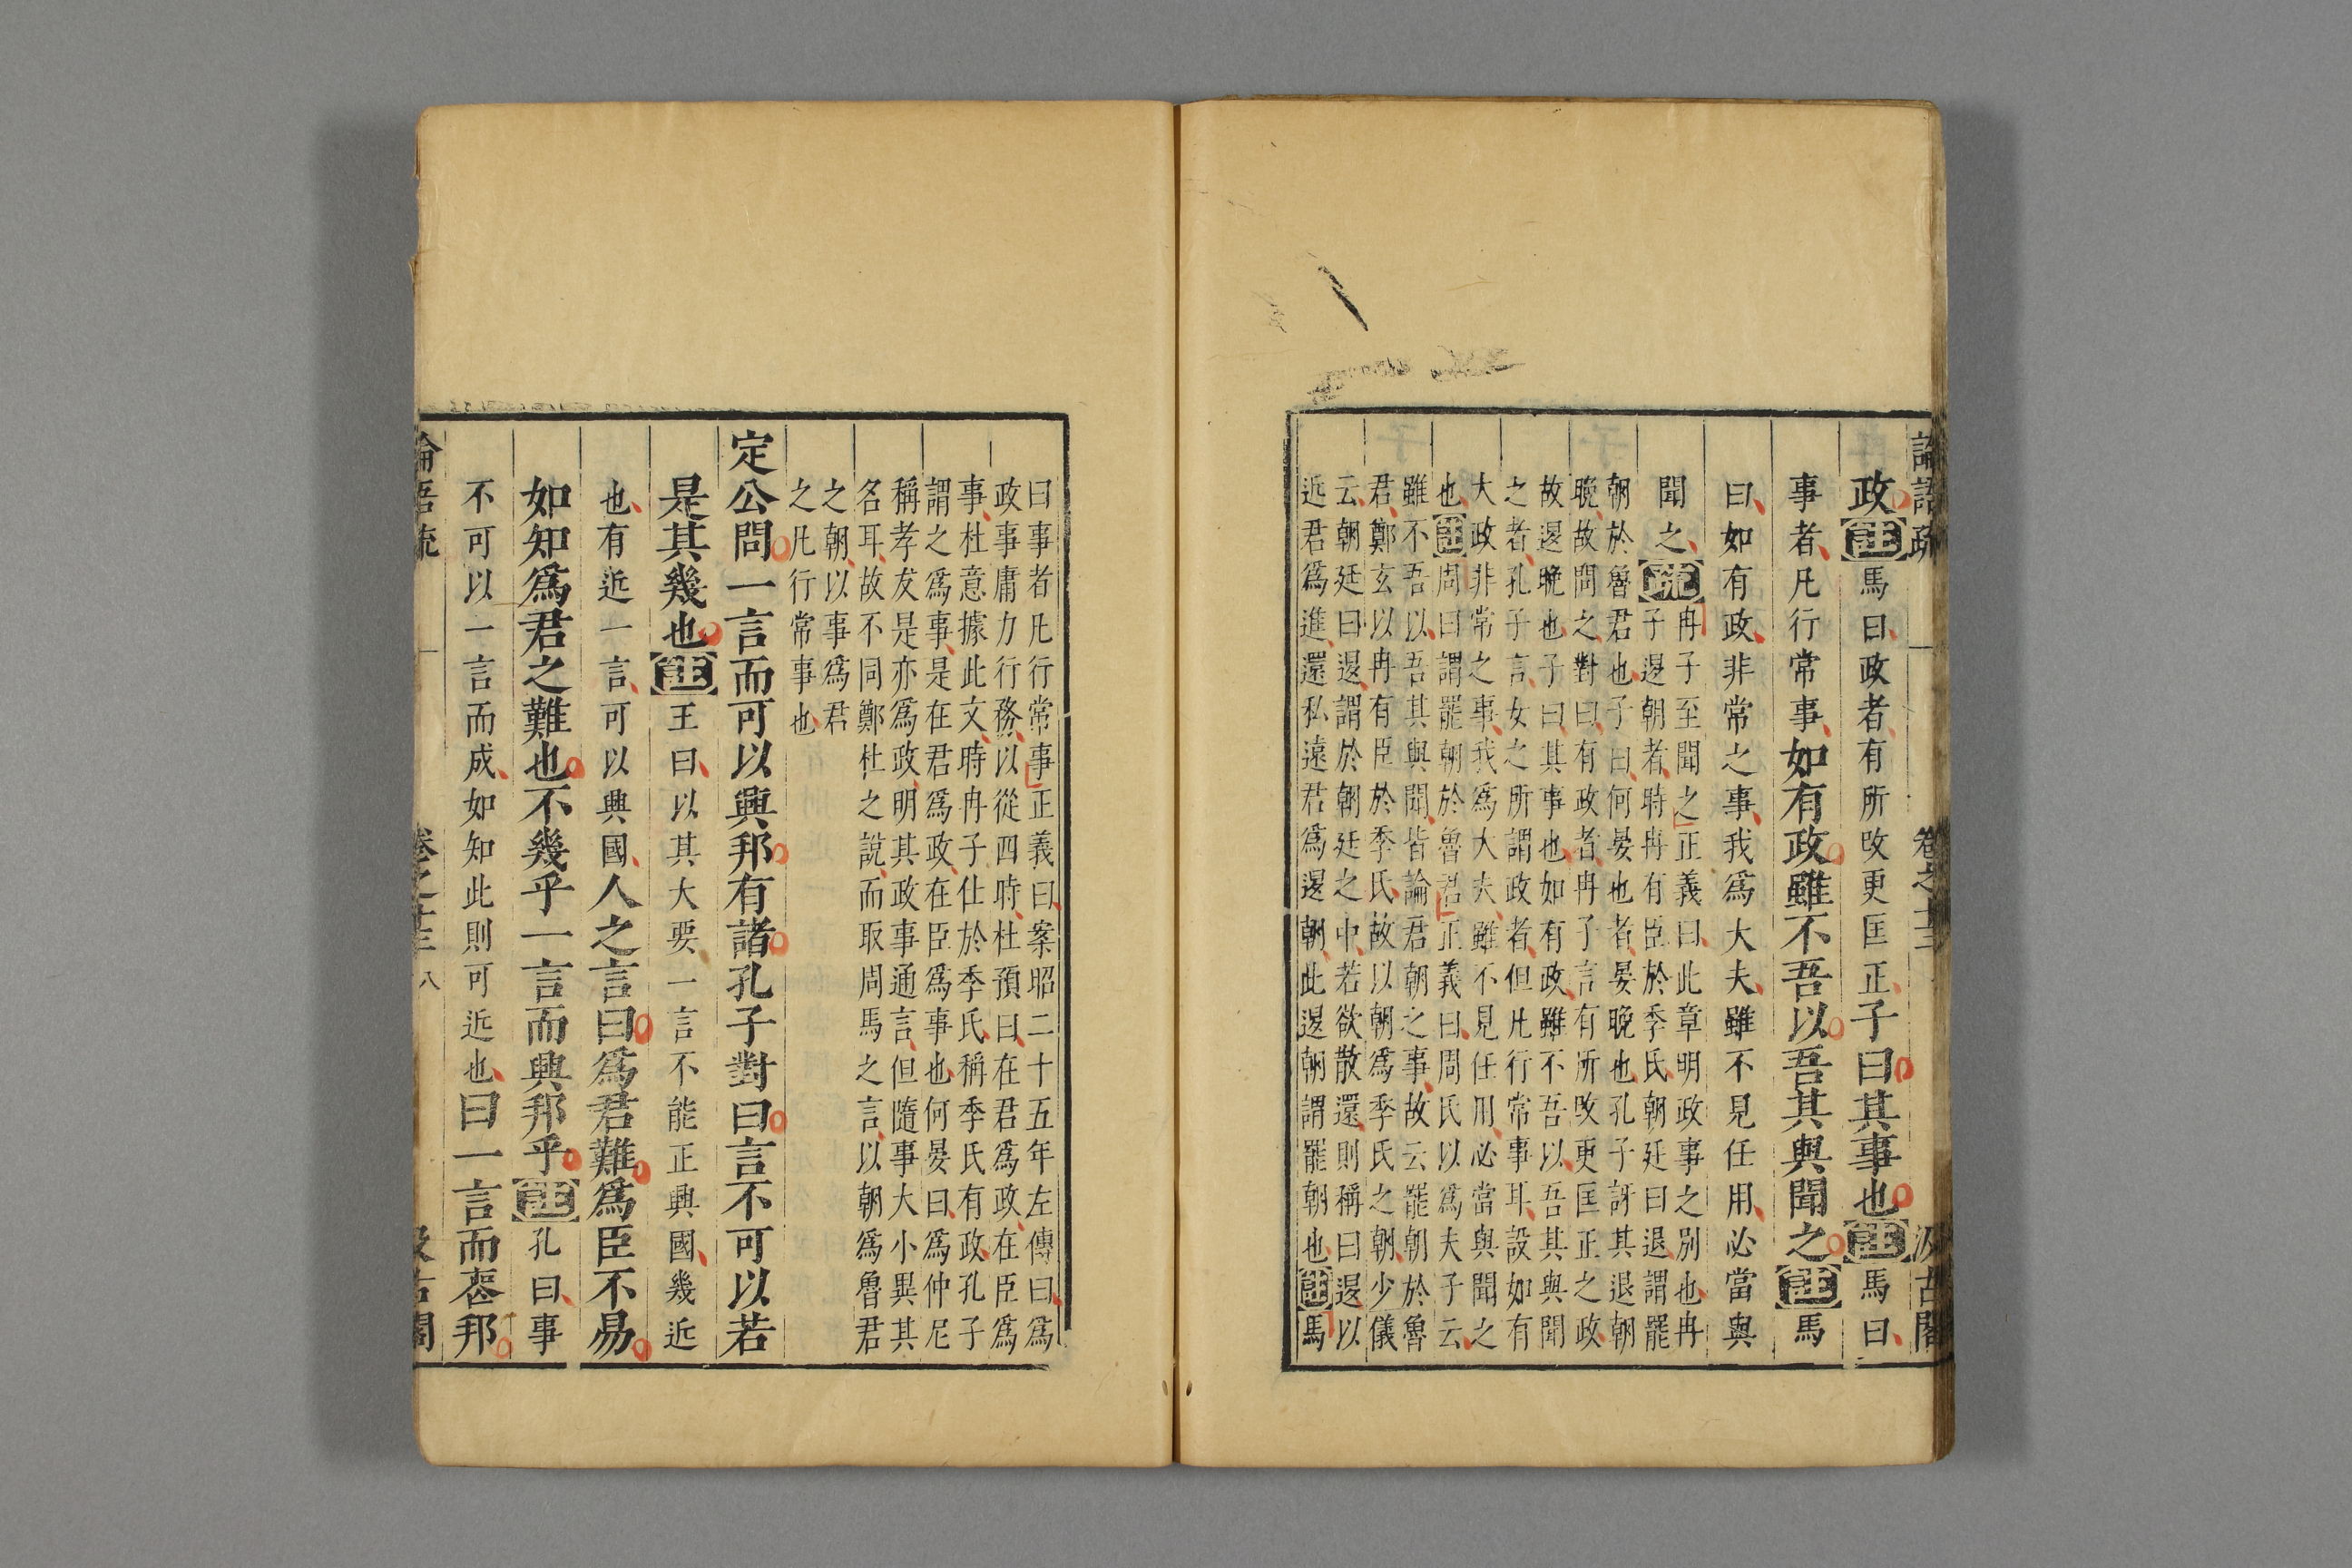 論語疏 卷之十三 汲古閣
政註馬曰政者有所改更匡正子曰其事也註馬曰
事者凡行常事如有政雖不吾以吾其與聞之註馬
曰如有政非常之事我爲大夫雖不見任用必當與
聞之疏冉子至聞之正義曰此章明政事之別也冉
子退朝者時冉有臣於季氏朝廷曰退謂罷
朝於魯君也子曰何晏也者晏晚也孔子訝其退朝
晚故問之對曰有政者冉子言有所改更匡正之政
故退晚也子曰其事也如有政雖不吾以吾其與聞
之者孔子言女之所謂政者但凡行常事耳設如有
大政非常之事我爲大夫雖不見任用必當與聞之
也註周曰謂罷朝於魯君正義曰周氏以爲夫子云
雖不吾以吾其與聞皆論君朝之事故云罷朝於魯
君鄭玄以冉有臣於季氏故以朝爲季氏之朝少儀
云朝廷曰退謂於朝廷之中若欲散還則稱曰退以
近君爲進還私遠君爲退朝此退朝謂罷朝也註馬
曰事者凡行常事正義曰案昭二十五年左傳曰爲
政事庸力行務以從四時杜預曰在君爲政在臣爲
事杜意據此文時冉子仕於季氏稱季氏有政孔子
謂之爲事是在君爲政在臣爲事也何晏曰爲仲尼
稱孝友是亦爲政明其政事通言但隨事大小異其
名耳故不同鄭杜之說而取周馬之言以朝爲魯君
之朝以事爲君
之凡行常事也
定公問一言而可以興邦有諸孔子對曰言不可以若
是其幾也註王曰以其大要一言不能正興國幾近
也有近一言可以興國人之言曰爲君難爲臣不易
如知爲君之難也不幾乎一言而興邦乎註孔曰事
不可以一言而成如知此則可近也曰一言而喪邦
論語疏 卷之十三 八 汲古閣